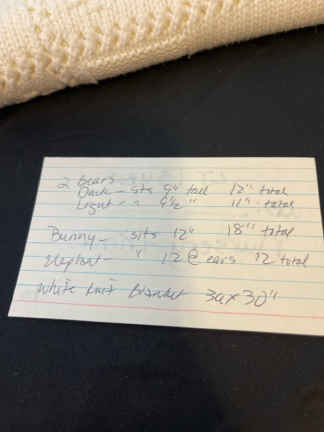 2 bears -
Dark - sits 9" tall 12" total
Light - " 9½ " 11" total
Bunny - sits 12" 18" total
elephant - " 12 @ ears 12 total
white knit blanket 30x30"